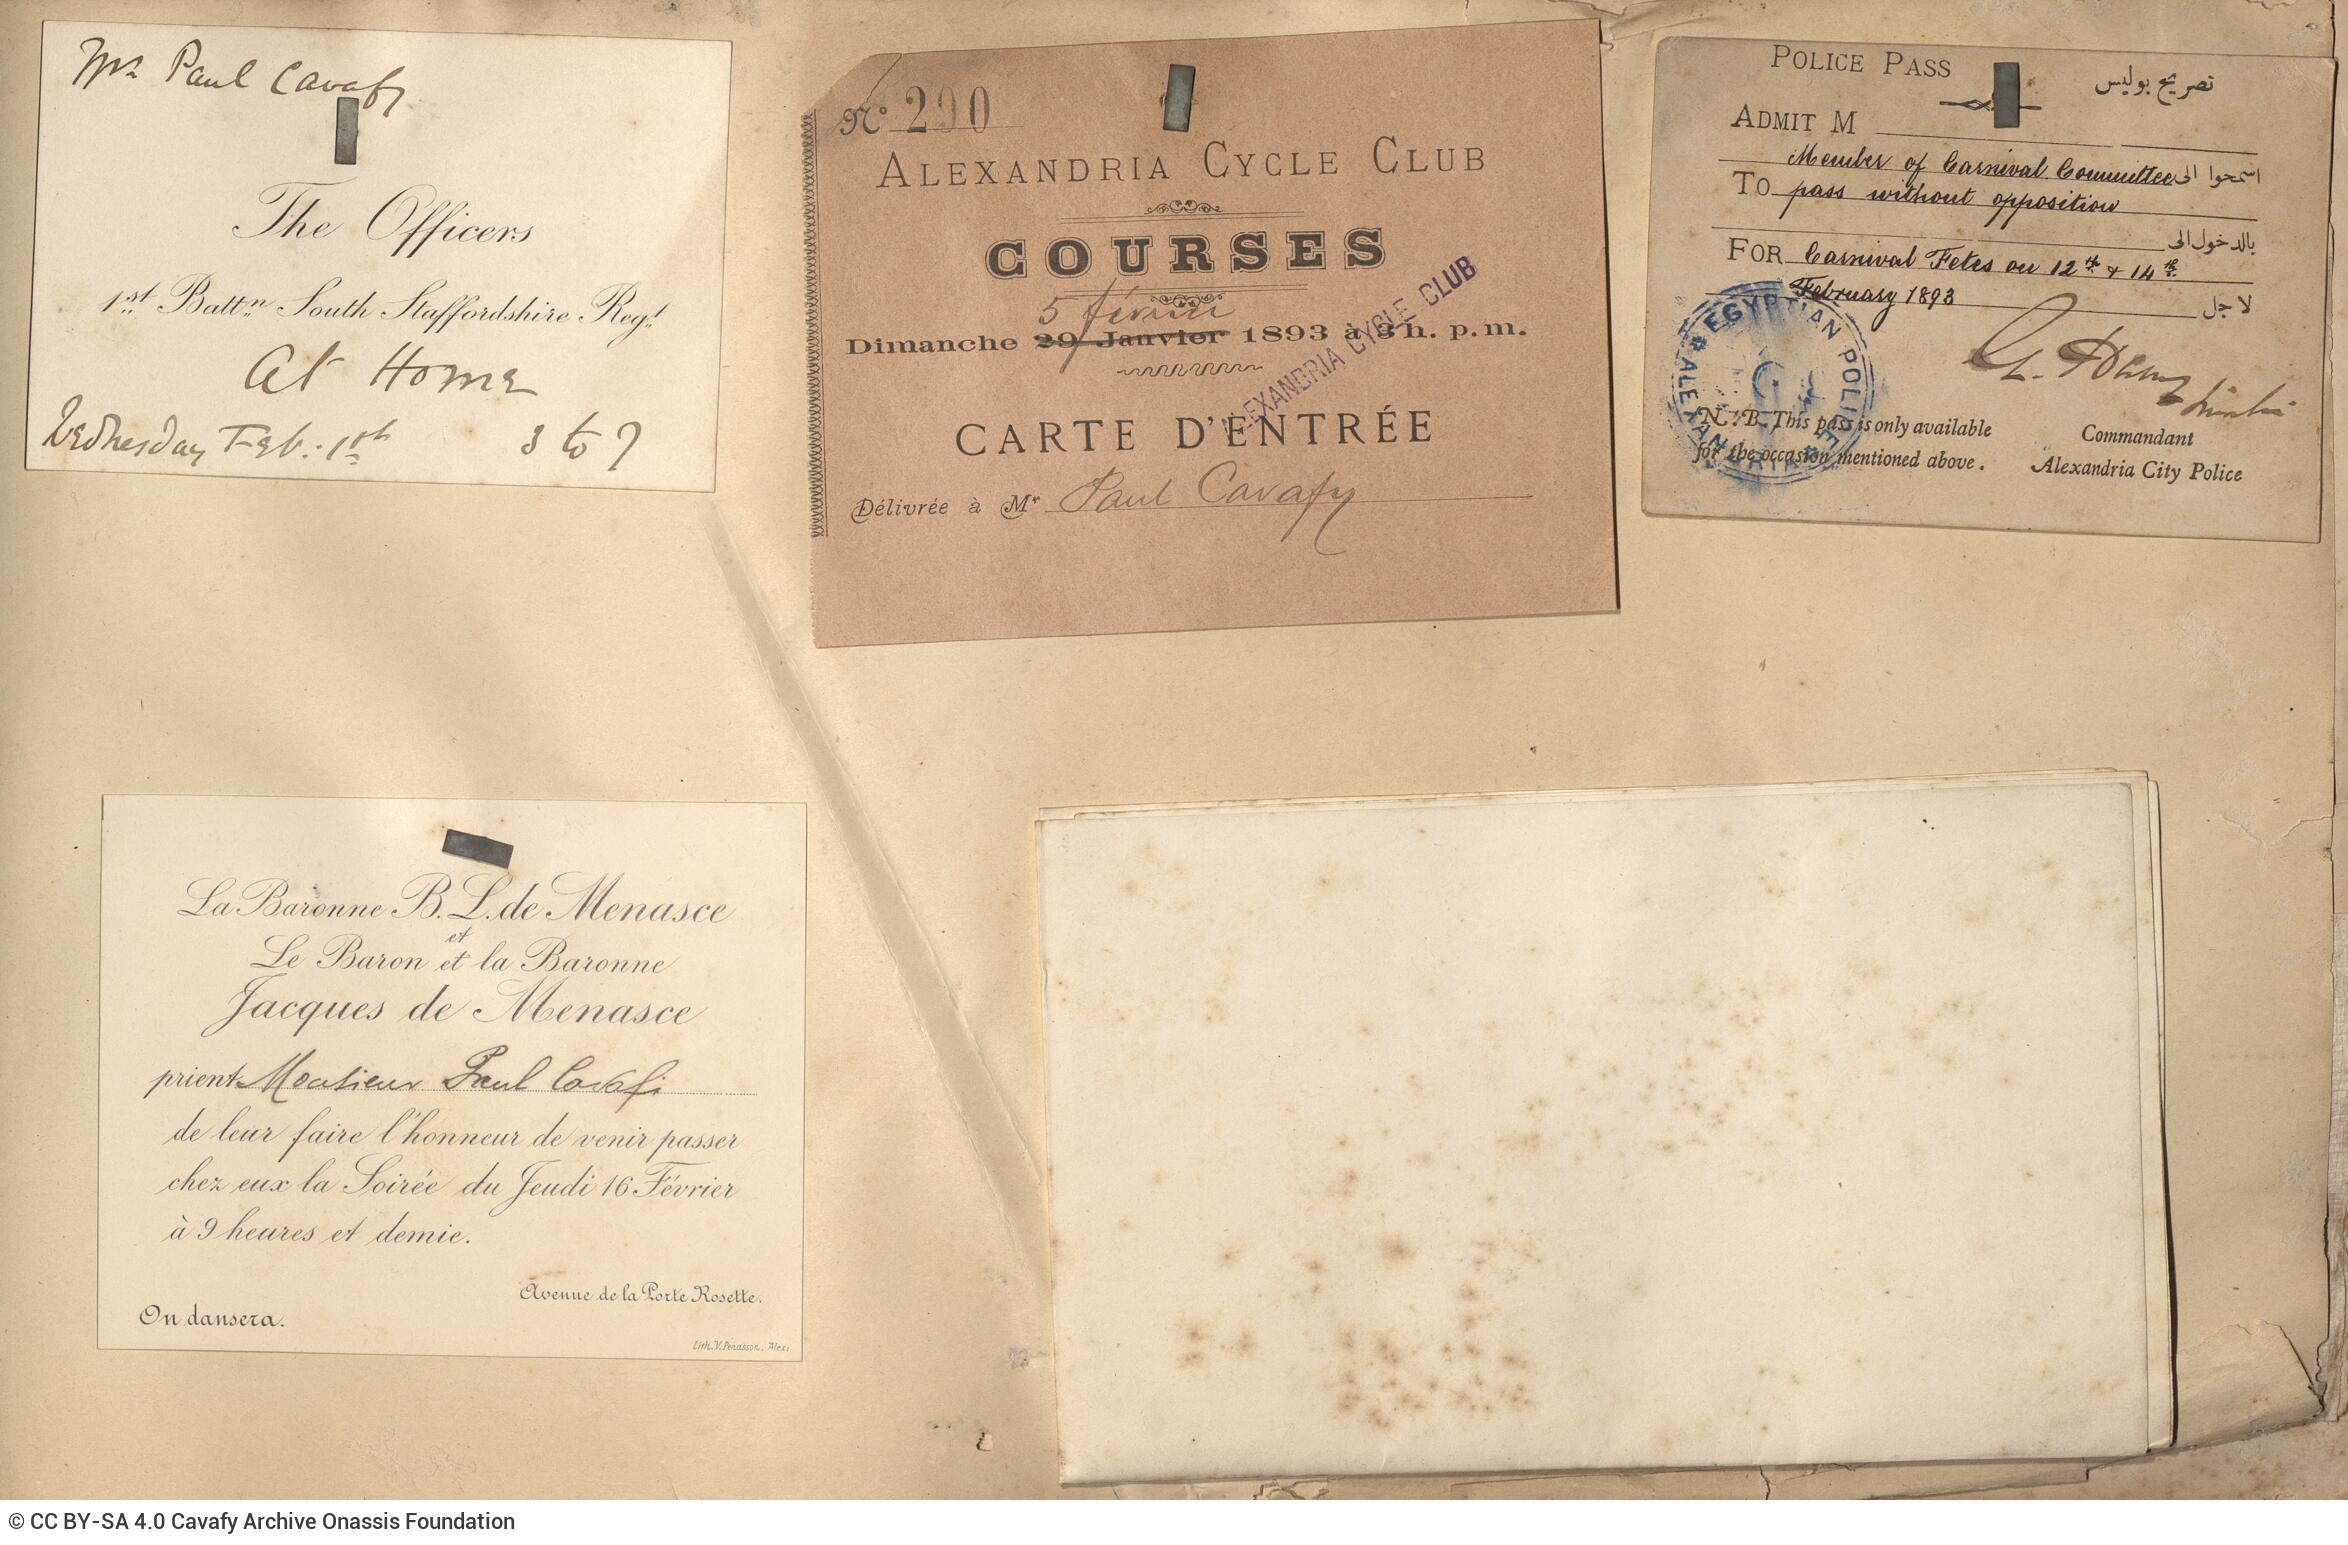 Mr Paul Cavafy
The Officers
1st Battn South Staffordshire Regt
At Home
Wednesday Feb. 1st 3 to 7
No 290
ALEXANDRIA CYCLE CLUB
COURSES
5 février
Dimanche 29 Janvier 1893 à 3 h. p.m.
ALEXANDRIA CYCLE CLUB
CARTE D'ENTRÉE
Délivrée à Mr Paul Cavafy
POLICE PASS تصريح بوليس
ADMIT M
Member of Carnival Committee اسمحوا الى
TO pass without opposition
بالدخول الى
FOR Carnival Fetes on 12th & 14th
February 1893 لاجل
EGYPTIAN POLICE ALEXANDRIA
N.B. This pass is only available
for the occasion mentioned above.
Commandant
Alexandria City Police
La Baronne B. L. de Menasce
et
Le Baron et la Baronne
Jacques de Menasce
prient Monsieur Paul Cavafi
de leur faire l'honneur de venir passer
chez eux la Soirée du Jeudi 16 Février
à 9 heures et demie.
Avenue de la Porte Rosette.
On dansera.
Lith. V. Penasson, Alex:
© CC BY-SA 4.0 Cavafy Archive Onassis Foundation